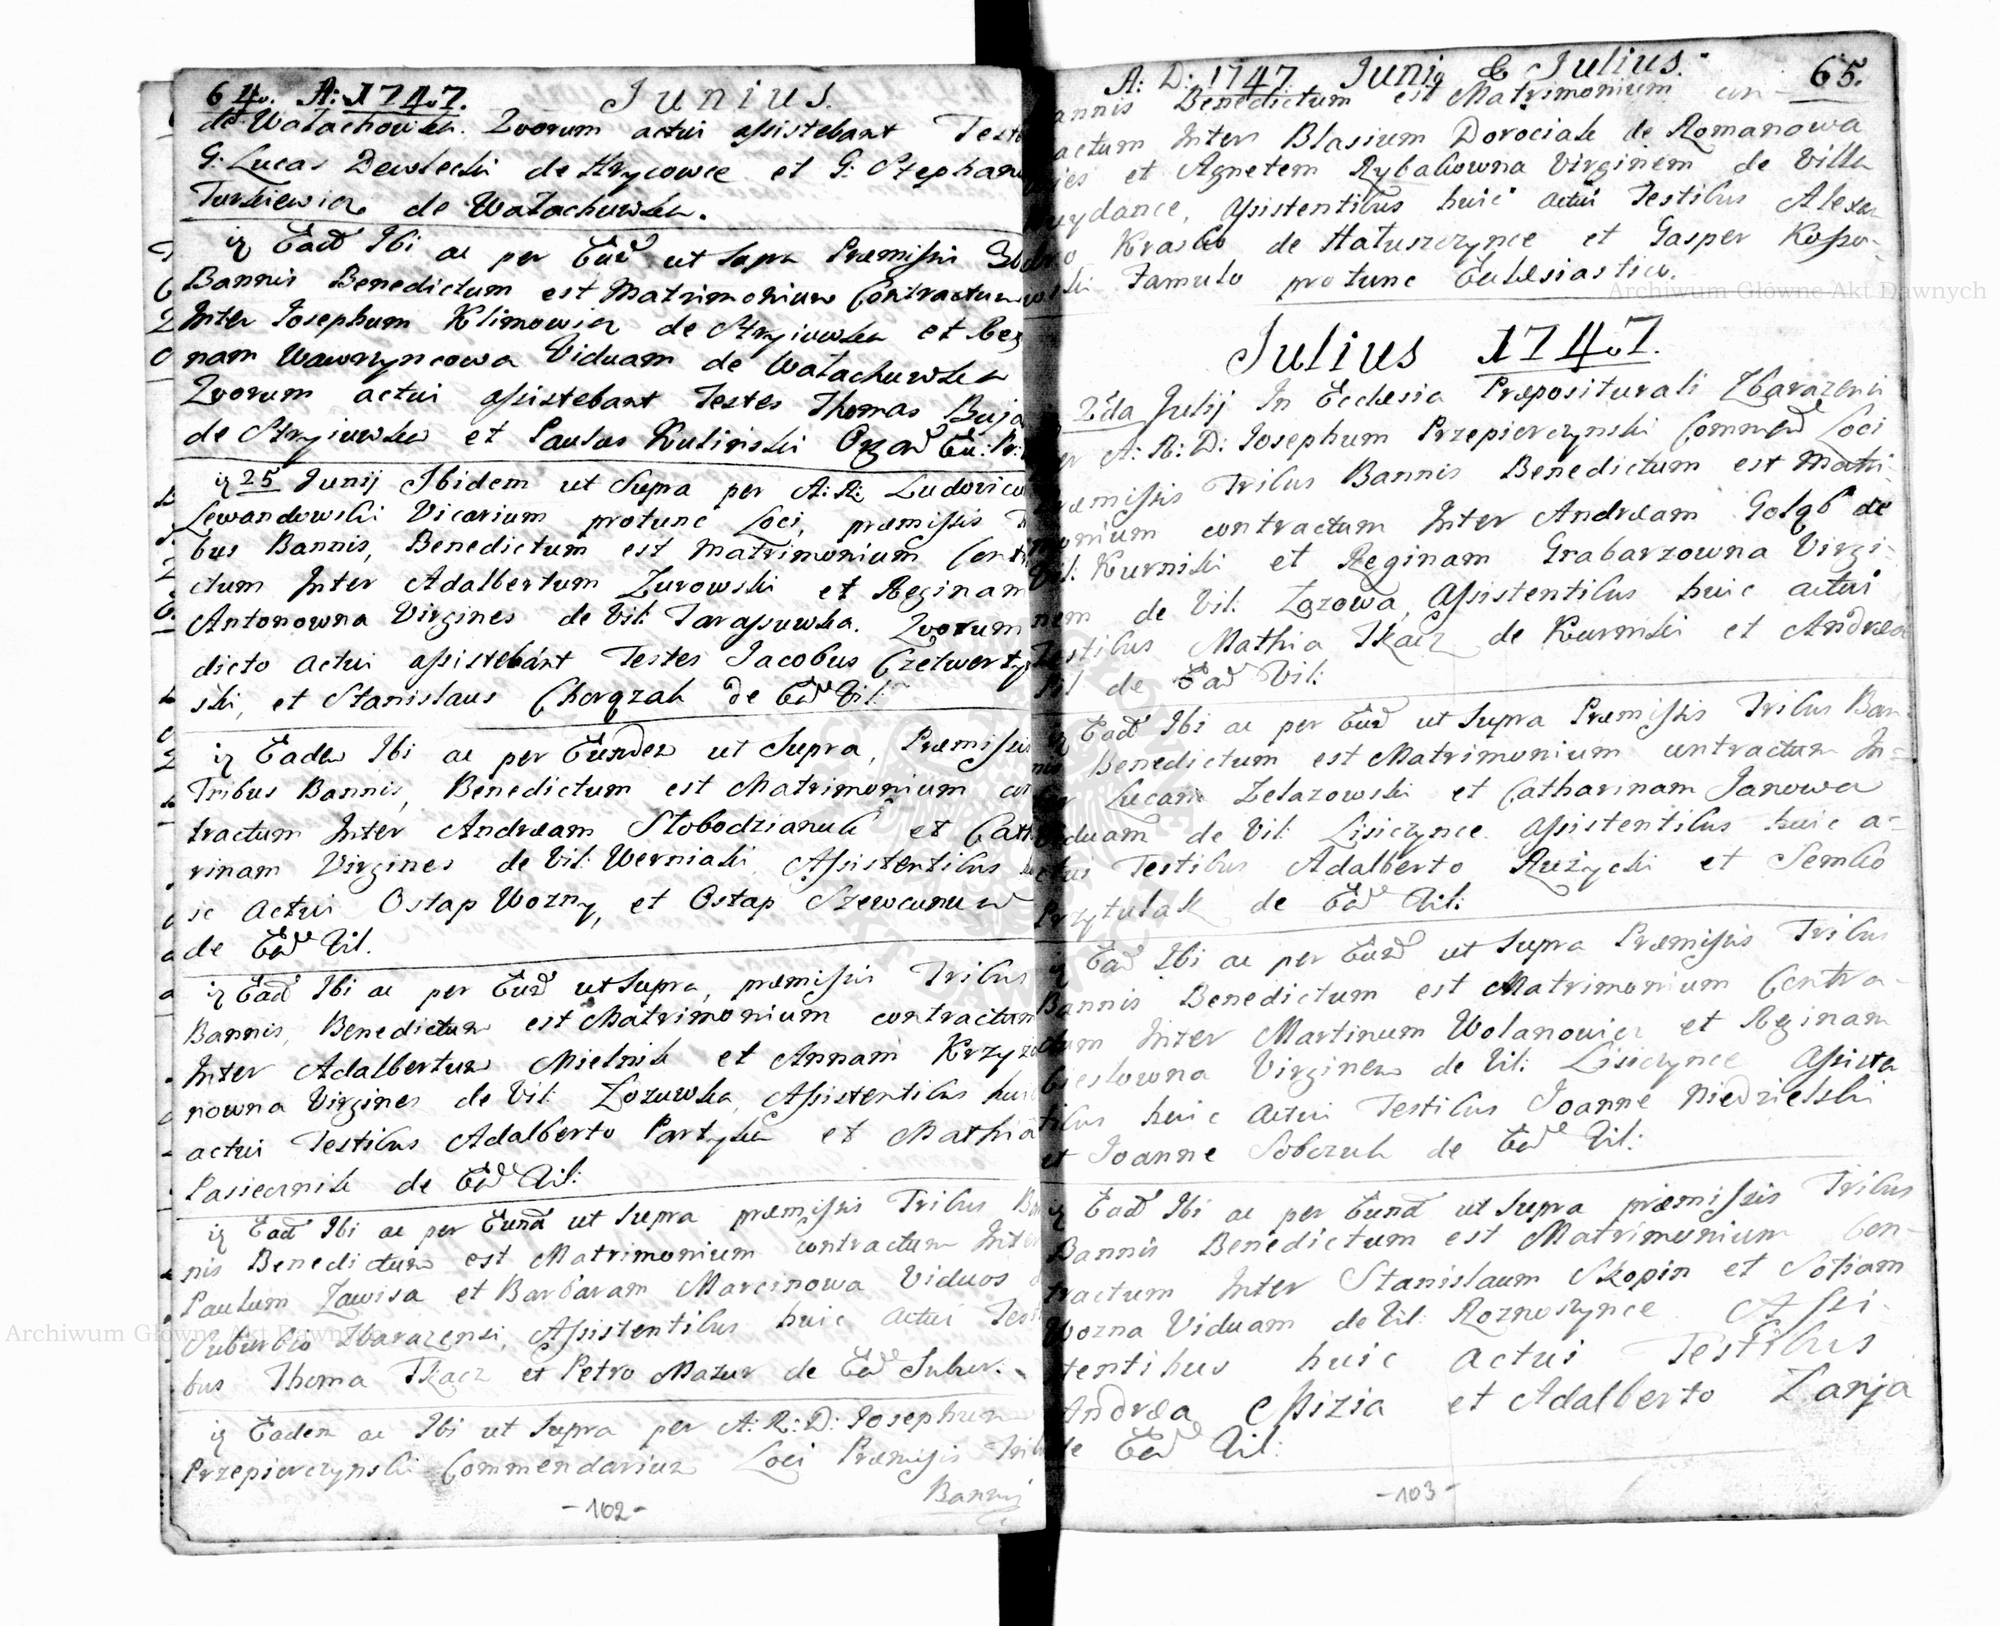 64. A: 1747. Junius.
de Wałachowka. Quorum actui assistebant Test
G: Lucas Dewlecki de Hrycowce et G: Stephan
Turkiewicz de Wałachuwka.
Ead Ibi ac per Eud ut Supra Præmissis
Bannis Benedictum est Matrimonium Contractum
Inter Josephum Klimowicz de Stryiuwka et Reg
nam Wawrzyncowa Viduam de Wałachuwka
Quorum actui assistebant Testes Thomas Buja
de Stryiuwka et Paulus Kulinski Orgad
25 Junij Ibidem ut Supra per A: R: Ludovicu
Lewandowski Vicarium protunc Loci, præmissis
bus Bannis, Benedictum est Matrimonium Contr
ctum Inter Adalbertum Zurowski et Reginam
Antonowna Virgines de Vil: Tarasuwka. Quorum
dicto actui assistebant Testes Jacobus Czetwerty
ski, et Stanislaus Chorązak de Ead Vil:
Eadem Ibi ac per Eundem ut Supra, Præmissis
Tribus Bannis, Benedictum est Matrimonium con
tractum Inter Andræam Słobodzianuk et Cath
rinam Virgines de Vil: Werniaki Assistentibus
ic actui Ostap Wozny, et Ostap Szewcunuw
de Ead Vil.
Ead Ibi ac per Eud ut Supra, præmissis Tribus
Bannis, Benedictum est Matrimonium contractum
Inter Adalbertum Mielnik et Annam Krzyza
nowna Virgines de Vil: Zozuwka, Assistentibus huic
actui Testibus Adalberto Partyka et Mathia
Pasiecznik de Ead Vil:
Ead Ibi ac per Eund ut Supra præmissis Tribus Ban
nis Benedictum est Matrimonium contractum Inter
Paulum Zawisa et Barbaram Marcinowa Viduos
Suburbio Zbarazensi, Assistentibus huic actui Testi
bus Thoma Tkacz et Petro Mazur de Ead Subur:
Eadem ac Ibi ut Supra per A: R: D: Josephum
Przepierczynski Commendarium Loci Præmissis Trib
Bannis
-102-
A: D: 1747. Junig & Julius. 65.
annis Benedictum est Matrimonium con-
actum Inter Blasium Dorociak de Romanowa
et Agnetem Rybakowna Virginem de Villa
Assistentibus huic actui Testibus Alexan
Krasko de Hałuszczynce et Gasper Kosso-
ski Famulo protunc Ecclesiastico.
Julius 1747.
2da Julij In Ecclesia Præpositurali Zbarazensi
er A: R: D: Josephum Przepierczynski Commend Loci
ræmissis Tribus Bannis Benedictum est Matri-
monium contractum Inter Andræam Gołąb de
Vil: Kurniki et Reginam Grabarzowna Virgi-
nem de Vil: Zozowa, Assistentibus huic actui
Testibus Mathia Tkacz de Kurniki et Andræa
de Ead Vil:
Ead Ibi ac per Eud ut Supra Præmissis Tribus Ban
nis Benedictum est Matrimonium contractum In=
ter Lucam Zelazowski et Catharinam Janowa
Viduam de Vil: Lisiczynce Assistentibus huic a=
ctui Testibus Adalberto Rużycki et Semko
Przytulak de Ead Vil:
Ead Ibi ac per Eund ut Supra Præmissis Tribus
Bannis Benedictum est Matrimonium Contra-
ctum Inter Martinum Wolanowicz et Reginam
Virginem de Vil: Lisiczynce Assista
tibus huic actui Testibus Joanne Niedzielski
et Joanne Sobczuk de Ead Vil:
Ead Ibi ac per Eund ut Supra præmissis Tribus
Bannis Benedictum est Matrimonium Con-
tractum Inter Stanislaum Skopin et Sofiam
Wozna Viduam de Vil: Roznoszynce Assi-
tentibus huic actui Testibus
Andræa Misizia et Adalberto Zanja
de Ead Vil:
-103-
Archiwum Główne Akt Dawnych
Archiwum Główne Akt Dawnych